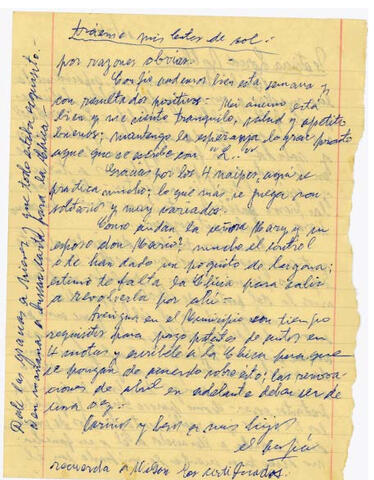 tráeme mis lentes de sol:
por razones obvias.
Confío andemos bien esta semana y
con resultados positivos. Mi ánimo está
bien y me siento tranquilo, salud y apetito
buenos; mantengo la esperanza lograr pronto
aque que se escribe con "L..."
Gracias por los 4 naipes, aquí se
practica mucho; lo que más se juega son
solitarios y muy variados.
Como andan la señora Mary y su
esposo don Mario? mucho el control
o le han dado un poquito de
estimo te falta la Chicia para salir
a revolverla por ahí.
Averigua en el Municipio con tiempo
requisitos para pago patentes de autos en
4 cuotas y escribele a la Chica para que
se pongan de acuerdo sobre esto; las renova
ciones de abril en adelante deben ser de
una vez.
Cariños y besos a mis hijos
el
recuerda a Nelson los certificados.
Dale las gracias a nieves que todo estaba exquisito.
mañana a